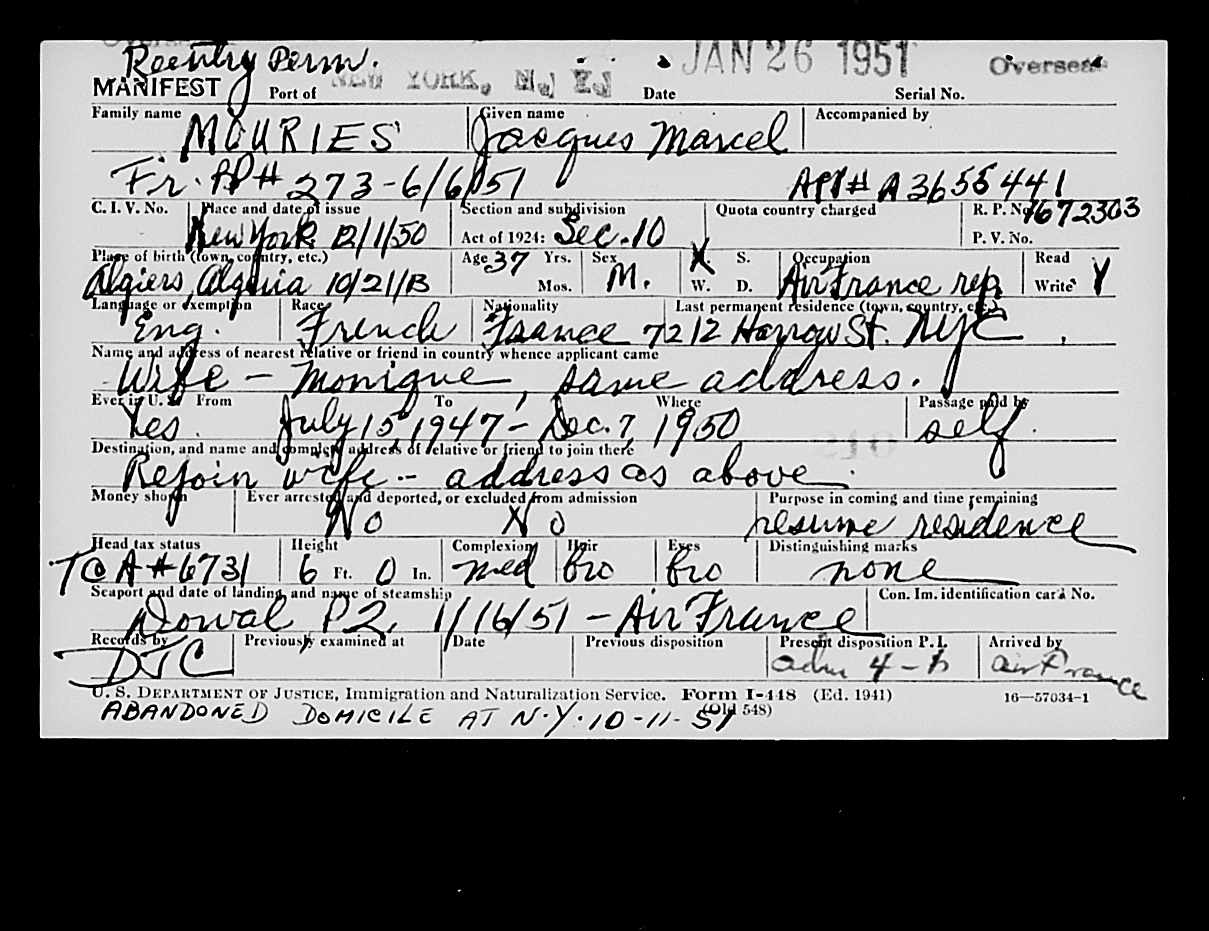 Reentry Perm.
MANIFEST Port of NEW YORK, N. Y. Date JAN 26 1951 Serial No. Overseas
Family name MOURIES Given name Jacques Marcel Accompanied by
Fr. PP# 273-6/6/51 APP# A3655441
C. I. V. No. Place and date of issue New York 12/1/50 Section and subdivision Act of 1924: Sec. 10 Quota country charged R. P. No. 1672303 P. V. No.
Place of birth (town, country, etc.) Algiers, Algeria 10/21/13 Age 37 Yrs. Mos. Sex M. X S. W. D. Occupation Air France rep. Read Write Y
Language or exemption Eng. Race French Nationality France Last permanent residence (town, country, etc.) 7212 Harrow St. NYC
Name and address of nearest relative or friend in country whence applicant came
Wife - Monique, same address.
Ever in U. S. Yes. From July 15 1947 - To Dec. 7 1950 Where Passage paid by self.
Destination, and name and complete address of relative or friend to join there 210
Rejoin wife - address as above.
Money shown Ever arrested and deported, or excluded from admission No No Purpose in coming and time remaining resume residence
Head tax status TC A#6731 Height 6 Ft. 0 In. Complexion med Hair bro Eyes bro Distinguishing marks none
Seaport and date of landing, and name of steamship Con. Im. identification card No.
Dowal P2, 1/16/51 - Air France
Records by DJC Previously examined at Date Previous disposition Present disposition P. I. adm 4-h Arrived by Air France
U. S. DEPARTMENT OF JUSTICE, Immigration and Naturalization Service. Form I-448 (Ed. 1941) 16—57034-1
(Old 548)
ABANDONED DOMICILE AT N.Y. 10-11-51